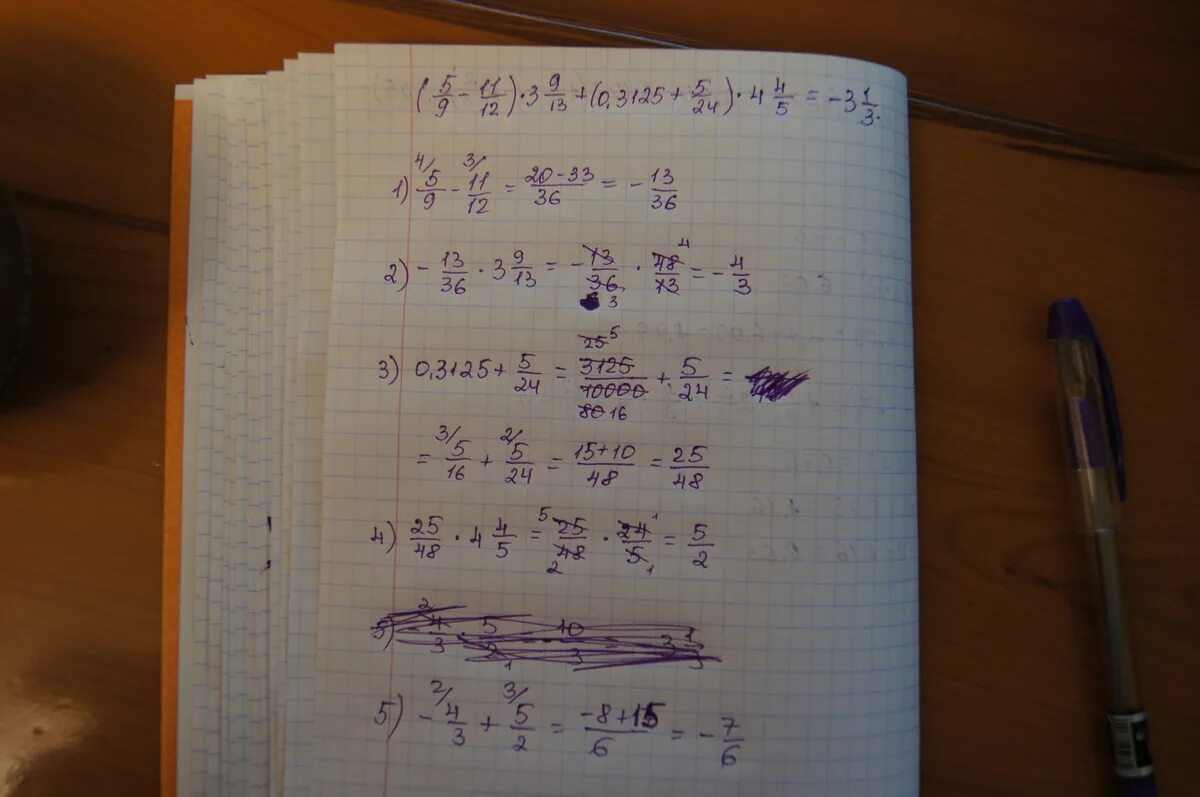 (5/9 - 11/12) · 3 9/13 + (0,3125 + 5/24) · 4 4/5 = -3 1/3.
1) 4/ 5/9 - 3/ 11/12 = 20-33/36 = - 13/36
2) - 13/36 · 3 9/13 = - 13/36 3 · 48 4/13 = - 4/3
3) 0,3125 + 5/24 = 25 5 3125/10000 80 16 + 5/24 =
= 3/ 5/16 + 2/ 5/24 = 15+10/48 = 25/48
4) 25/48 · 4 4/5 = 5 25/48 2 · 24 1/5 1 = 5/2
5) - 2/ 4/3 + 3/ 5/2 = -8+15/6 = - 7/6